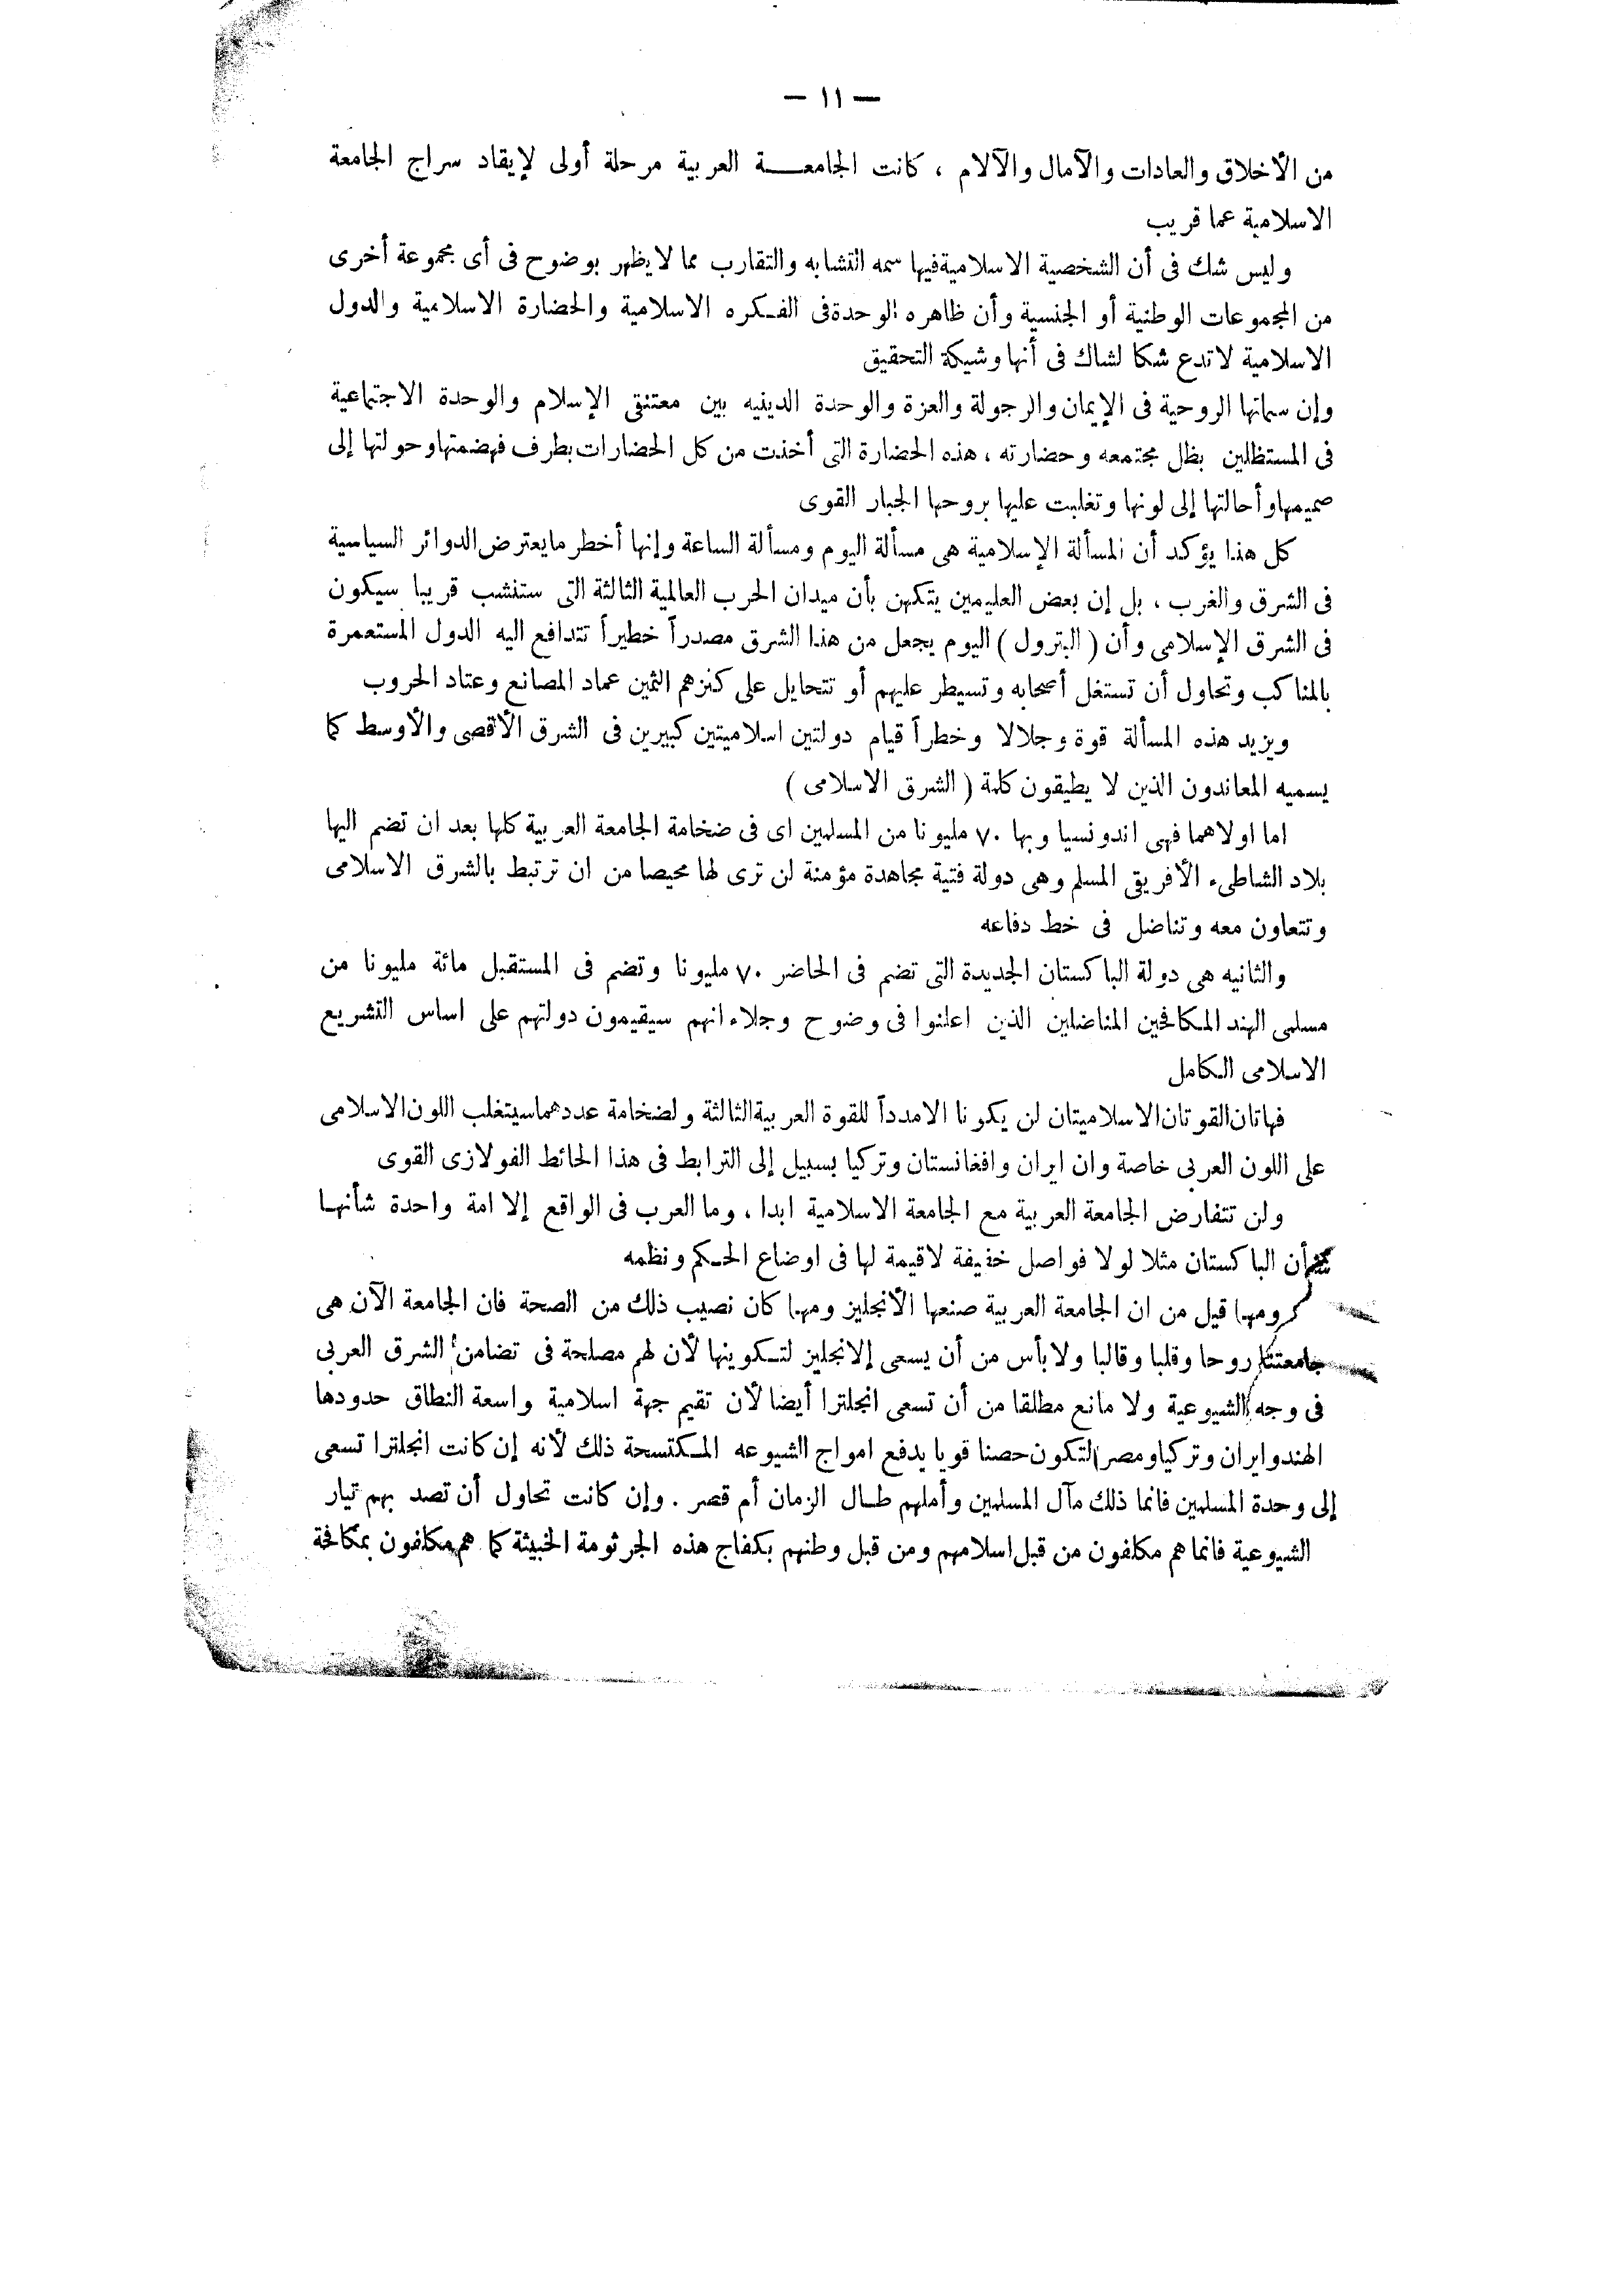 — ١١ —
من الأخلاق والعادات والآمال والآلام ، كانت الجامعة العربية مرحلة أولى لإيقاد سراج الجامعة
الاسلامية عما قريب
وليس شك فى أن الشخصية الاسلامية فيها سمه التشابه والتقارب مما لا يظهر بوضوح فى أى مجموعة أخرى
من المجموعات الوطنية أو الجنسية وأن ظاهره الوحدة فى الفكره الاسلامية والحضارة الاسلامية والدول
الاسلامية لا تدع شكا لشاك فى أنها وشيكة التحقيق
وإن سماتها الروحية فى الإيمان والرجولة والعزة والوحدة الدينيه بين معتنقى الإسلام والوحدة الاجتماعية
فى المستظلين بظل مجتمعه وحضارته ، هذه الحضارة التى أخذت من كل الحضارات بطرف فهضمتها وحولتها إلى
صميمها وأحالتها إلى لونها وتغلبت عليها بروحها الجبار القوى
كل هذا يؤكد أن المسألة الإسلامية هى مسألة اليوم ومسألة الساعة وإنها أخطر ما يعترض الدوائر السياسية
فى الشرق والغرب ، بل إن بعض العليمين يتكهن بأن ميدان الحرب العالمية الثالثة التى ستنشب قريبا سيكون
فى الشرق الإسلامى وأن ( البترول ) اليوم يجعل من هذا الشرق مصدراً خطيراً تتدافع اليه الدول المستعمرة
بالمناكب وتحاول أن تستغل أصحابه وتسيطر عليهم أو تتحايل على كنزهم الثمين عماد المصانع وعتاد الحروب
ويزيد هذه المسألة قوة وجلالا وخطراً قيام دولتين اسلاميتين كبيرين فى الشرق الأقصى والأوسط كما
يسميه المعاندون الذين لا يطيقون كلمة ( الشرق الاسلامى )
اما اولاهما فهى اندونسيا وبها ٧٠ مليونا من المسلمين اى فى ضخامة الجامعة العربية كلها بعد ان تضم اليها
بلاد الشاطىء الأفريقى المسلم وهى دولة فتية مجاهدة مؤمنة لن ترى لها محيصا من ان ترتبط بالشرق الاسلامى
وتتعاون معه وتناضل فى خط دفاعه
والثانيه هى دولة الباكستان الجديدة التى تضم فى الحاضر ٧٠ مليونا وتضم فى المستقبل مائة مليونا من
مسلمى الهند المكافحين المناضلين الذين اعلنوا فى وضوح وجلاء انهم سيقيمون دولتهم على اساس التشريع
الاسلامى الكامل
فهاتان القوتان الاسلاميتان لن يكونا الا مدداً للقوة العربية الثالثة ولضخامة عددهما سيتغلب اللون الاسلامى
على اللون العربى خاصة وان ايران وافغانستان وتركيا بسبيل إلى الترابط فى هذا الحائط الفولازى القوى
ولن تتفارض الجامعة العربية مع الجامعة الاسلامية ابدا ، وما العرب فى الواقع إلا امة واحدة شأنها
شأن الباكستان مثلا لولا فواصل خفيفة لا قيمة لها فى اوضاع الحكم ونظمه
ومهما قيل من ان الجامعة العربية صنعها الأنجليز ومهما كان نصيب ذلك من الصحة فان الجامعة الآن هى
جامعتنا روحا وقلبا وقالبا ولا بأس من أن يسعى الانجليز لتكوينها لأن لهم مصلحة فى تضامن الشرق العربى
فى وجه الشيوعية ولا مانع مطلقا من أن تسعى انجلترا أيضا لأن تقيم جهة اسلامية واسعة النطاق حدودها
الهند وايران وتركيا ومصر لتكون حصنا قويا يدفع امواج الشيوعه المكتسحة ذلك لأنه إن كانت انجلترا تسعى
إلى وحدة المسلمين فانما ذلك مآل المسلمين وأملهم طال الزمان أم قصر . وإن كانت تحاول أن تصد بهم تيار
الشيوعية فانما هم مكلفون من قبل اسلامهم ومن قبل وطنهم بكفاح هذه الجرثومة الخبيثة كما هم مكافون بمكافحة